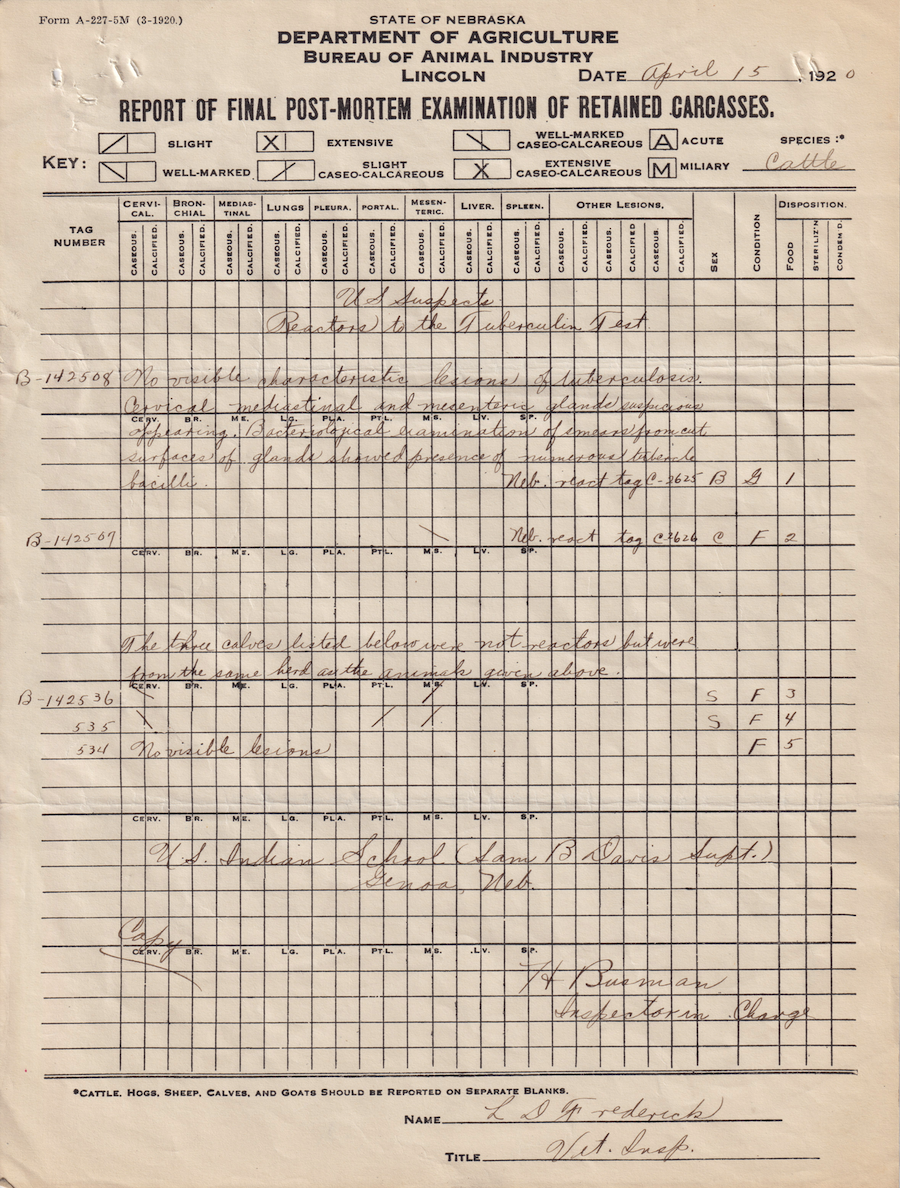 Form A-227-5M (3-1920.)
STATE OF NEBRASKA
DEPARTMENT OF AGRICULTURE
BUREAU OF ANIMAL INDUSTRY
LINCOLN DATE April 15, 1920
REPORT OF FINAL POST-MORTEM EXAMINATION OF RETAINED CARCASSES.
KEY: SLIGHT X EXTENSIVE WELL-MARKED CASEO-CALCAREOUS A ACUTE SPECIES:* Cattle
WELL-MARKED SLIGHT CASEO-CALCAREOUS X EXTENSIVE CASEO-CALCAREOUS M MILIARY
TAG NUMBER CERVI-CAL. BRON-CHIAL MEDIAS-TINAL LUNGS PLEURA. PORTAL. MESEN-TERIC. LIVER. SPLEEN. OTHER LESIONS. SEX CONDITION DISPOSITION.
CASEOUS. CALCIFIED. CASEOUS. CALCIFIED. CASEOUS. CALCIFIED. CASEOUS. CALCIFIED. CASEOUS. CALCIFIED. CASEOUS. CALCIFIED. CASEOUS. CALCIFIED. CASEOUS. CALCIFIED. CASEOUS. CALCIFIED. CASEOUS. CALCIFIED. CASEOUS. CALCIFIED. CASEOUS. CALCIFIED. FOOD STERILIZ'N CONDEM'D.
U S Suspects
Reactors to the Tuberculin Test
B-142508 No visible characteristic lesions of tuberculosis.
Cervical mediastinal and mesenteric glands suspicious
CERV. BR. ME. LG. PLA. PTL. MS. LV. SP.
appearing. Bacteriological examination of smears from cut
surfaces of glands showed presence of numerous tubercle
bacilli. Neb. react tag C-2625 B G 1
B-142507 \ Neb. react tag C2626 C F 2
CERV. BR. ME. LG. PLA. PTL. MS. LV. SP.
The three calves listed below were not reactors but were
from the same herd as the animals given above.
CERV. BR. ME. LG. PLA. PTL. MS. LV. SP.
B-142536 \ / S F 3
535 \ / / S F 4
534 No visible lesions F 5
CERV. BR. ME. LG. PLA. PTL. MS. LV. SP.
U.S. Indian School (Sam B Davis Supt.)
Genoa, Neb.
Copy
CERV. BR. ME. LG. PLA. PTL. MS. LV. SP.
H Busman
Inspector in Charge
*CATTLE, HOGS, SHEEP, CALVES, AND GOATS SHOULD BE REPORTED ON SEPARATE BLANKS.
NAME L D Frederick
TITLE Vet. Insp.